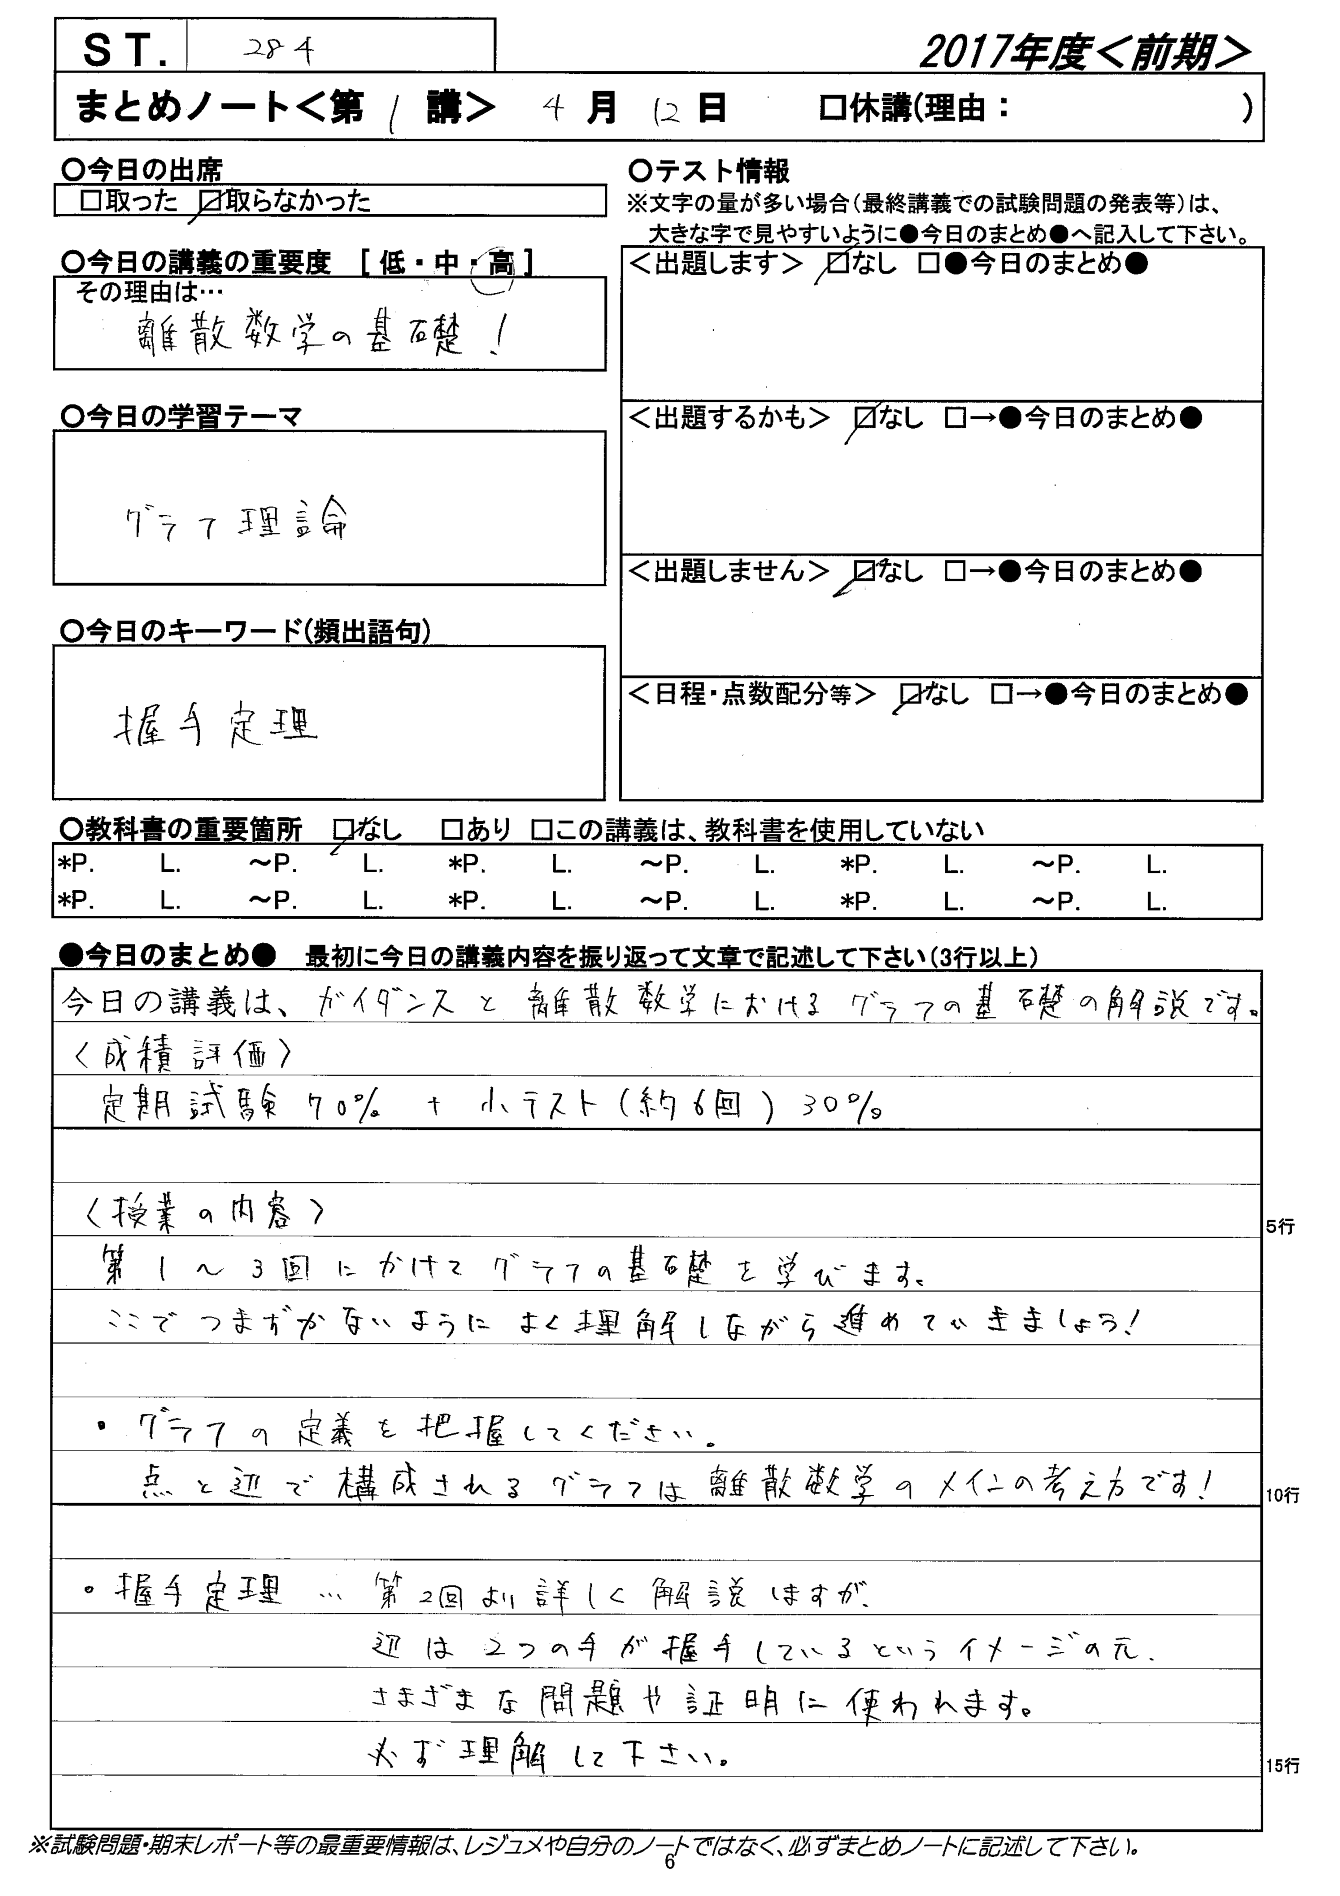 ST. 284
2017年度＜前期＞
まとめノート＜第 1 講＞ 4 月 12 日 □休講(理由： )
○今日の出席
□取った ☑取らなかった
○今日の講義の重要度 [ 低・中・高 ]
その理由は…
離散数学の基礎！
○今日の学習テーマ
グラフ理論
○今日のキーワード(頻出語句)
握手定理
○テスト情報
※文字の量が多い場合(最終講義での試験問題の発表等)は、
大きな字で見やすいように●今日のまとめ●へ記入して下さい。
＜出題します＞ ☑なし □●今日のまとめ●
＜出題するかも＞ ☑なし □→●今日のまとめ●
＜出題しません＞ ☑なし □→●今日のまとめ●
＜日程・点数配分等＞ ☑なし □→●今日のまとめ●
○教科書の重要箇所 ☑なし □あり □この講義は、教科書を使用していない
*P. L. ～P. L. *P. L. ～P. L. *P. L. ～P. L.
*P. L. ～P. L. *P. L. ～P. L. *P. L. ～P. L.
●今日のまとめ● 最初に今日の講義内容を振り返って文章で記述して下さい(3行以上)
今日の講義は、ガイダンスと離散数学におけるグラフの基礎の解説です。
〈成績評価〉
定期試験70% + 小テスト(約6回) 30%
〈授業の内容〉
5行
第1～3回にかけてグラフの基礎を学びます。
ここでつまずかないようによく理解しながら進めていきましょう！
・グラフの定義を把握してください。
点と辺で構成されるグラフは離散数学のメインの考え方です！
10行
・握手定理 … 第2回より詳しく解説しますが、
辺は2つの手が握手しているというイメージの元、
さまざまな問題や証明に使われます。
必ず理解して下さい。
15行
※試験問題・期末レポート等の最重要情報は、レジュメや自分のノートではなく、必ずまとめノートに記述して下さい。
6